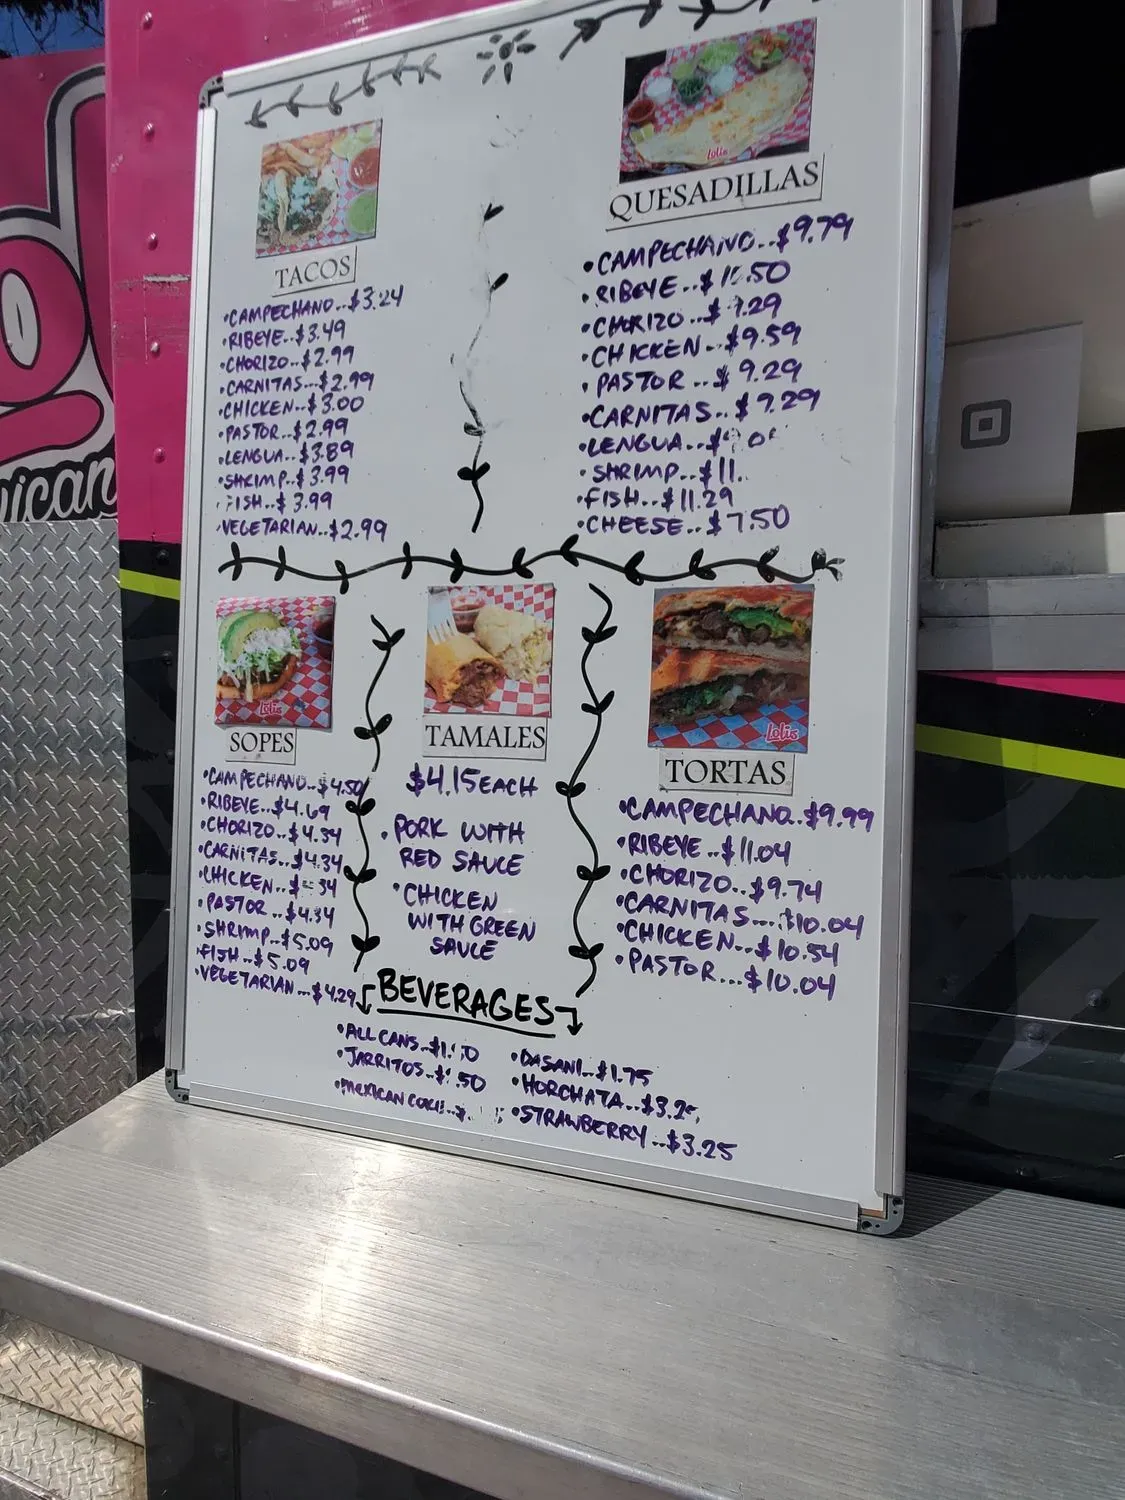 TACOS
•CAMPECHANO..$3.24
•RIBEYE..$3.49
•CHORIZO..$2.99
•CARNITAS...$2.99
•CHICKEN..$3.00
•PASTOR..$2.99
•LENGUA..$3.89
•SHRIMP..$3.99
•FISH..$3.99
•VEGETARIAN..$2.99
Lolis
QUESADILLAS
•CAMPECHANO..$9.79
•RIBEYE..$10.50
•CHORIZO..$9.29
•CHICKEN..$9.59
•PASTOR...$9.29
•CARNITAS..$9.29
•LENGUA..
•SHRIMP..
•FISH..$11.29
•CHEESE..$7.50
Lolis
SOPES
•CAMPECHANO..$4.50
•RIBEYE..$4.69
•CHORIZO..$4.34
•CARNITAS..$4.34
•CHICKEN..
•PASTOR..$4.34
•SHRIMP..$5.09
•FISH..$5.09
•VEGETARIAN...$4.29
TAMALES
$4.15 EACH
•PORK WITH
RED SAUCE
•CHICKEN
WITH GREEN
SAUCE
Lolis
TORTAS
•CAMPECHANO..$9.99
•RIBEYE..$11.04
•CHORIZO..$9.74
•CARNITAS...$10.04
•CHICKEN..$10.54
•PASTOR...$10.04
BEVERAGES
•ALL CANS..
•JARRITOS..
•MEXICAN COKE..
•DASANI..$1.75
•HORCHATA..
•STRAWBERRY..$3.25